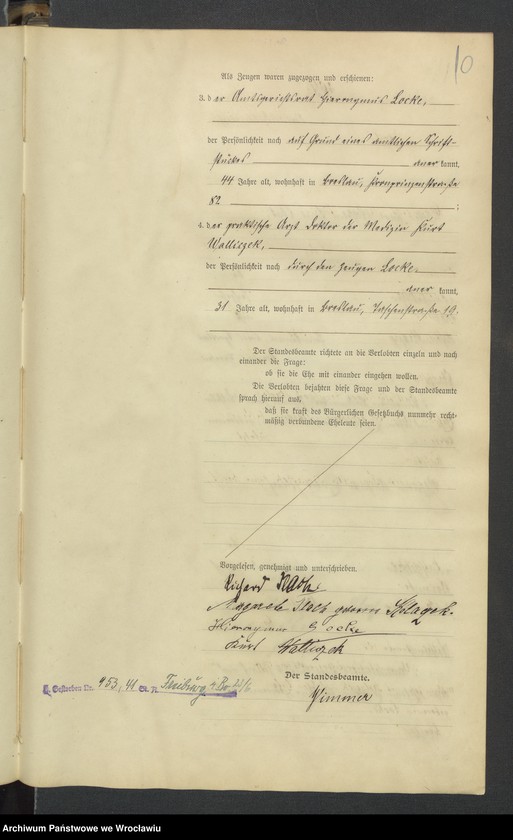 10
Als Zeugen waren zugezogen und erschienen:
3. der Amtsgerichtsrat Hieronymus Locke,
der Persönlichkeit nach auf Grund eines amtlichen Schrift-
stückes anerkannt,
44 Jahre alt, wohnhaft in Breslau, Kronprinzenstraße
82 ;
4. der praktische Arzt Doktor der Medizin Kurt
Walliczek,
der Persönlichkeit nach durch den Zeugen Locke
anerkannt,
31 Jahre alt, wohnhaft in Breslau, Taschenstraße 19.
Der Standesbeamte richtete an die Verlobten einzeln und nach
einander die Frage:
ob sie die Ehe mit einander eingehen wollen.
Die Verlobten bejahten diese Frage und der Standesbeamte
sprach hierauf aus,
daß sie kraft des Bürgerlichen Gesetzbuchs nunmehr recht-
mäßig verbundene Eheleute seien.
Vorgelesen, genehmigt und unterschrieben.
Richard
Margarete geborene
Hieronymus Locke
Kurt Walliczek
Der Standesbeamte.
Gestorben Nr. 953/41 St. A. Freiburg i. Br
Archiwum Państwowe we Wrocławiu